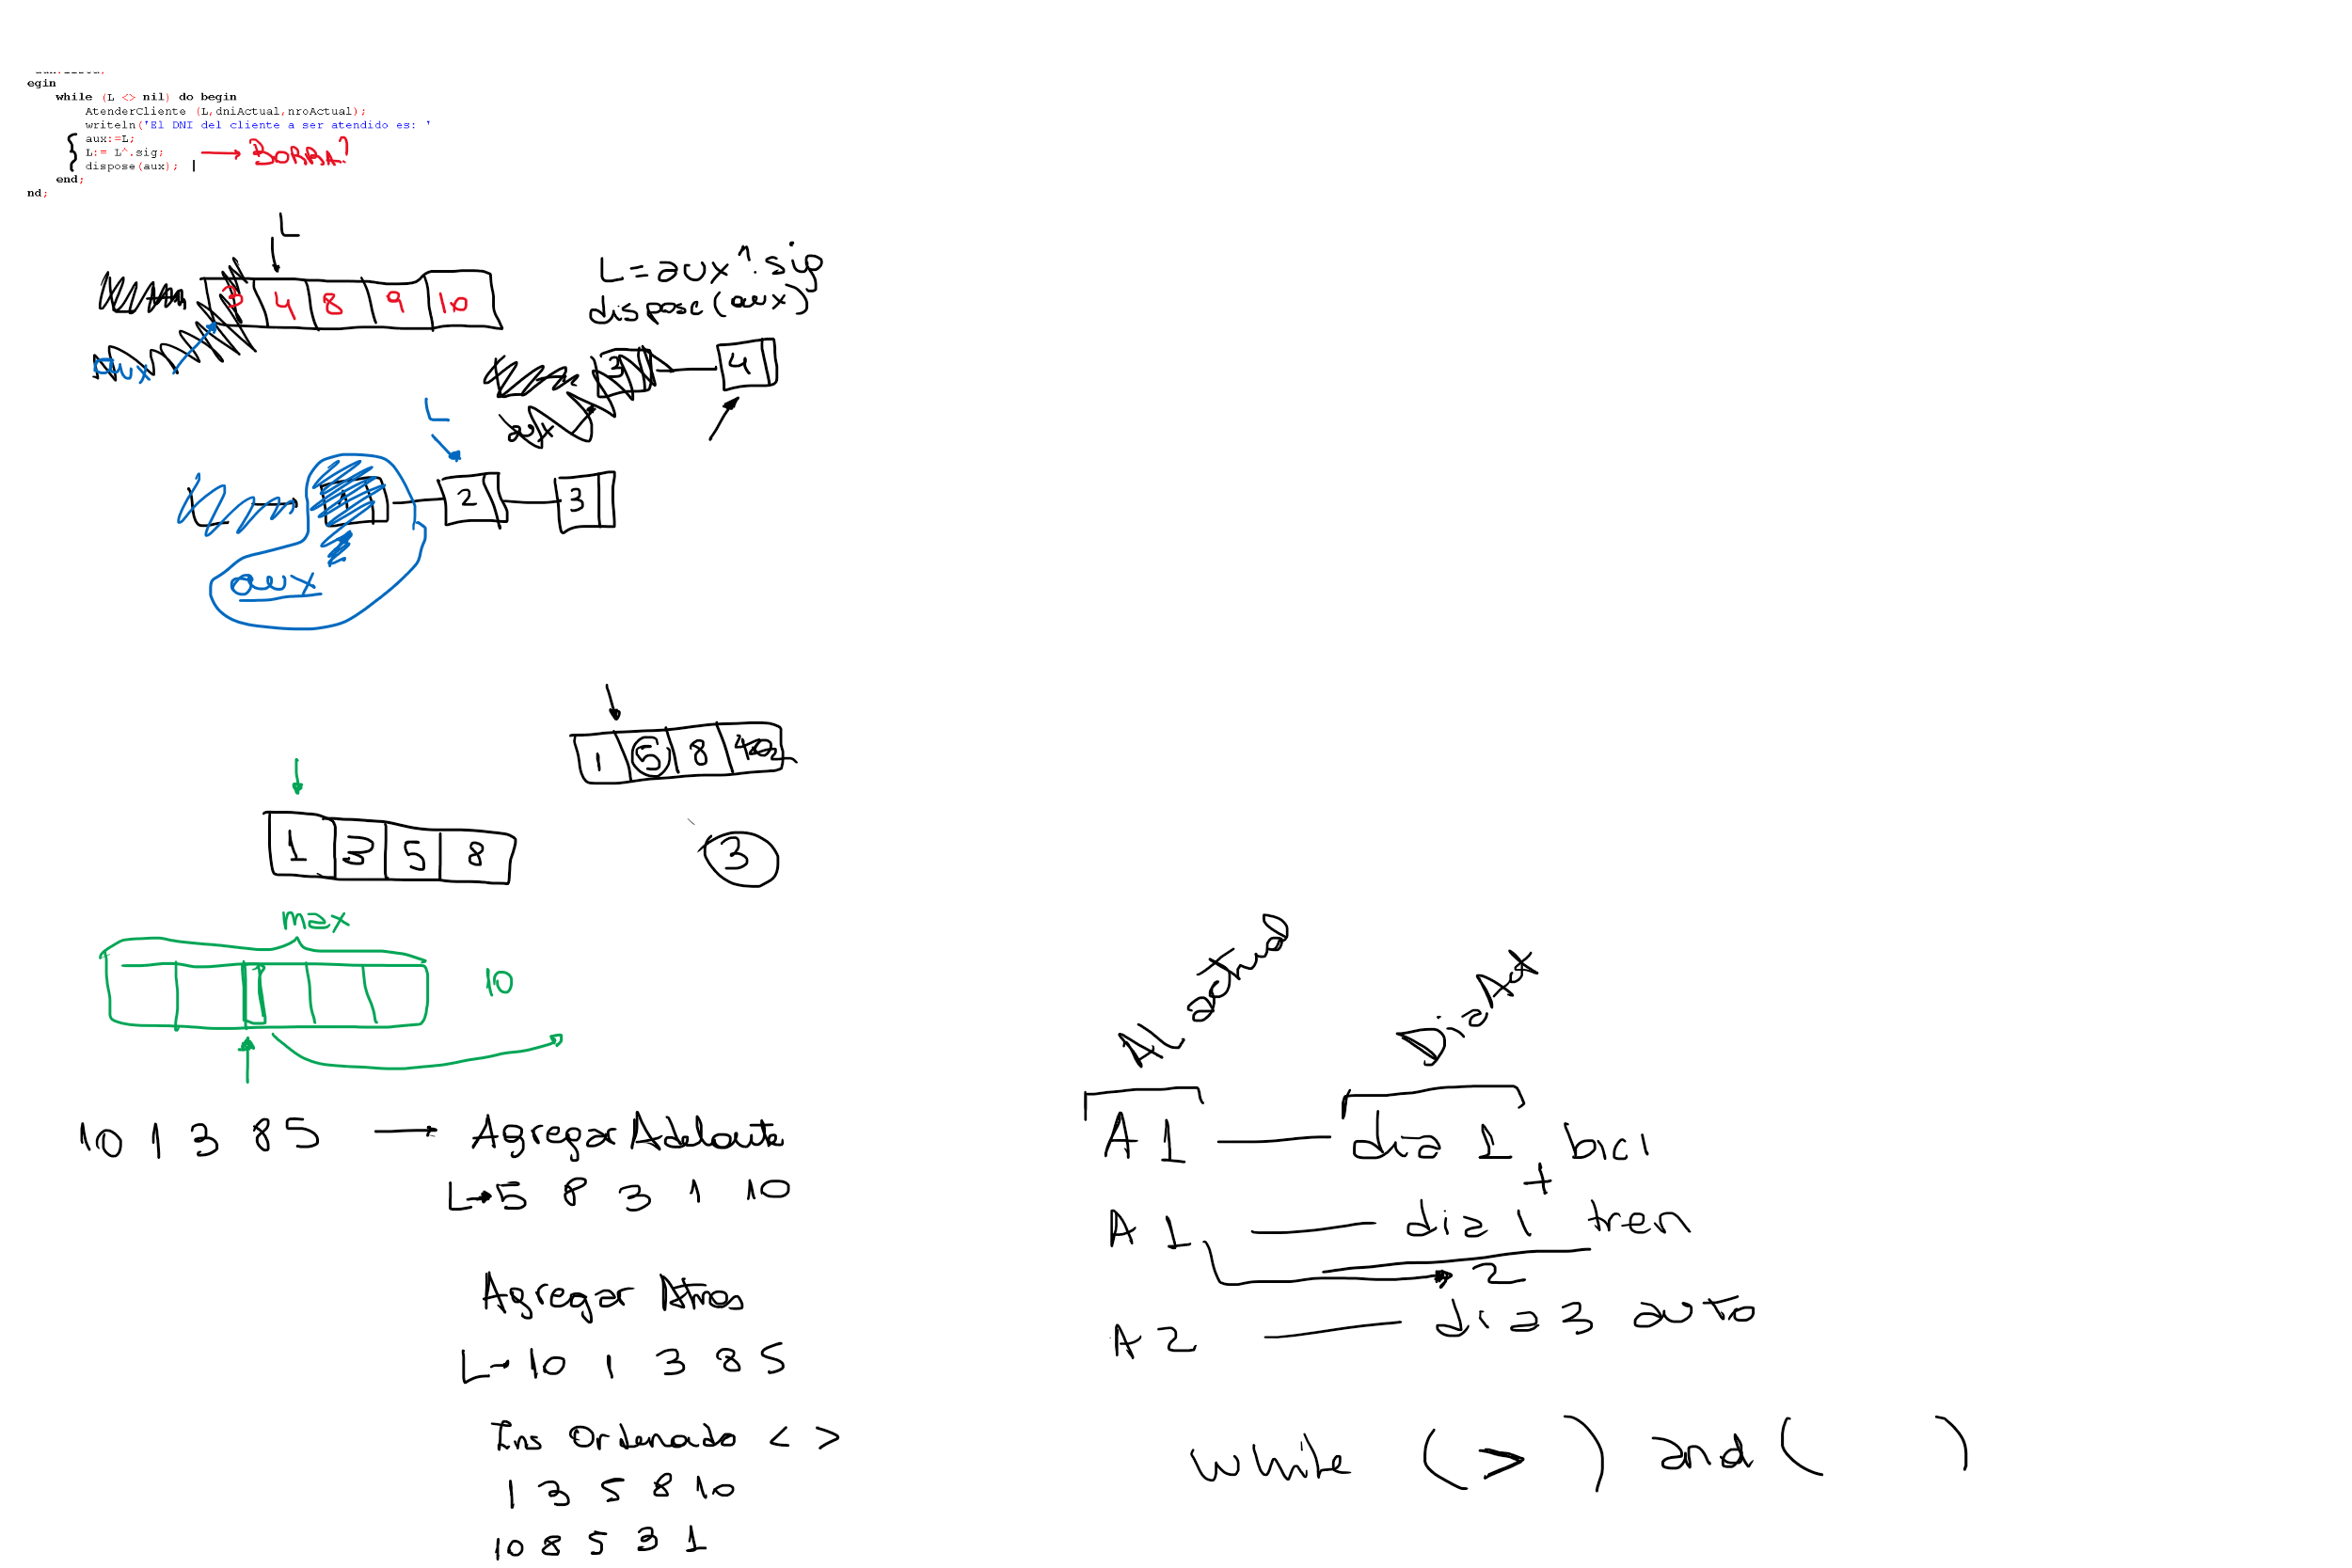 egin
while (L <> nil) do begin
AtenderCliente (L,dniActual,nroActual);
writeln('El DNI del cliente a ser atendido es: '
aux:=L;
L:= L^.sig; → BORRA?
dispose(aux);
end;
nd;
L
3 4 8 9 10
aux
L=aux^.sig
dispose(aux)
3 4
aux
L
L 1 2 3
aux
1 5 8
1 3 5 8
3
max
10
10 1 3 8 5 → Agregar Adelante
L→5 8 3 1 10
Agregar Atras
L→10 1 3 8 5
Ins Ordenado < >
1 3 5 8 10
10 8 5 3 1
AL actual
DiaAct
A1 — dia 1 bici
+
A1 — dia 1 tren
2
A2 — dia 3 auto
while ( > ) and ( )